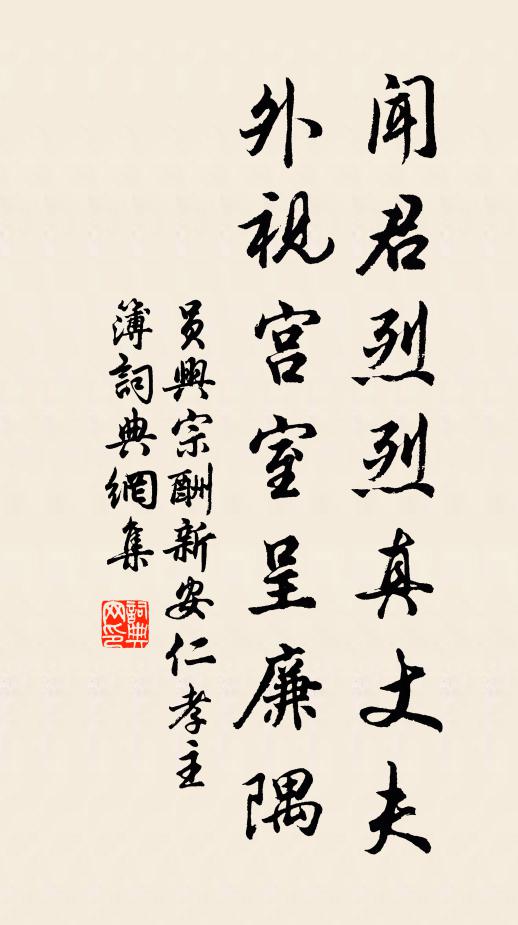 闻君烈烈真丈夫
外视宫室呈廉隅
员興宗酬新安仁孝主
簿詞典網集
詞典网印